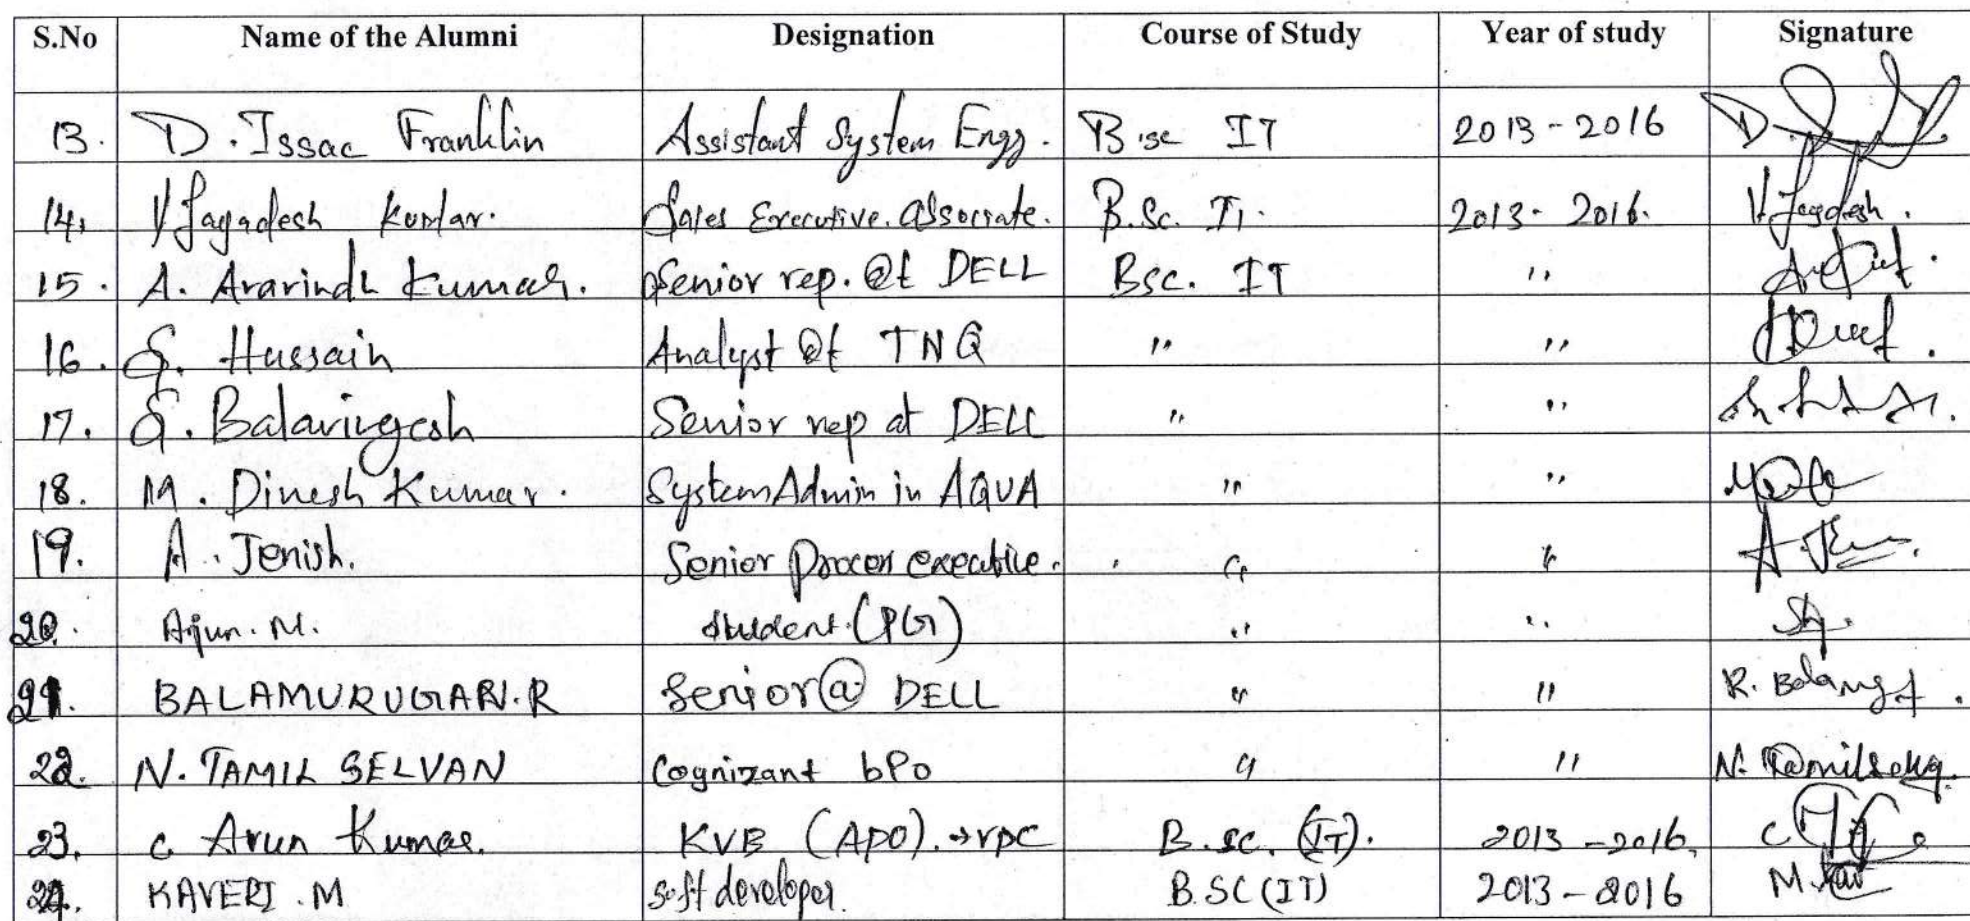 S.No Name of the Alumni Designation Course of Study Year of study Signature
13. D. Issac Franklin Assistant System Engg. B.sc IT 2013 - 2016 D.
14. V Jagadesh Kumar. Sales Executive. Associate. B.Sc. IT. 2013 - 2016. V Jagdesh.
15. A. Aravindh Kumar. Senior rep. @t DELL BSC. IT "
16. S. Hussain Analyst @t TNQ " "
17. S. Balavingesh Senior rep at DELL " "
18. M. Dinesh Kumar. System Admin in AQUA " "
19. A. Jenish. Senior Process executive. " "
20. Arjun. M. Student (PG) " "
21. BALAMURUGAN. R Senior @ DELL " " R.
22. N. TAMIL SELVAN Cognizant bPO " " N.
23. C Arun Kumar. KVB (APO). → rpc B.sc. (IT). 2013 - 2016. C
24. KAVERI . M soft developer. B.SC (IT) 2013 - 2016 M.